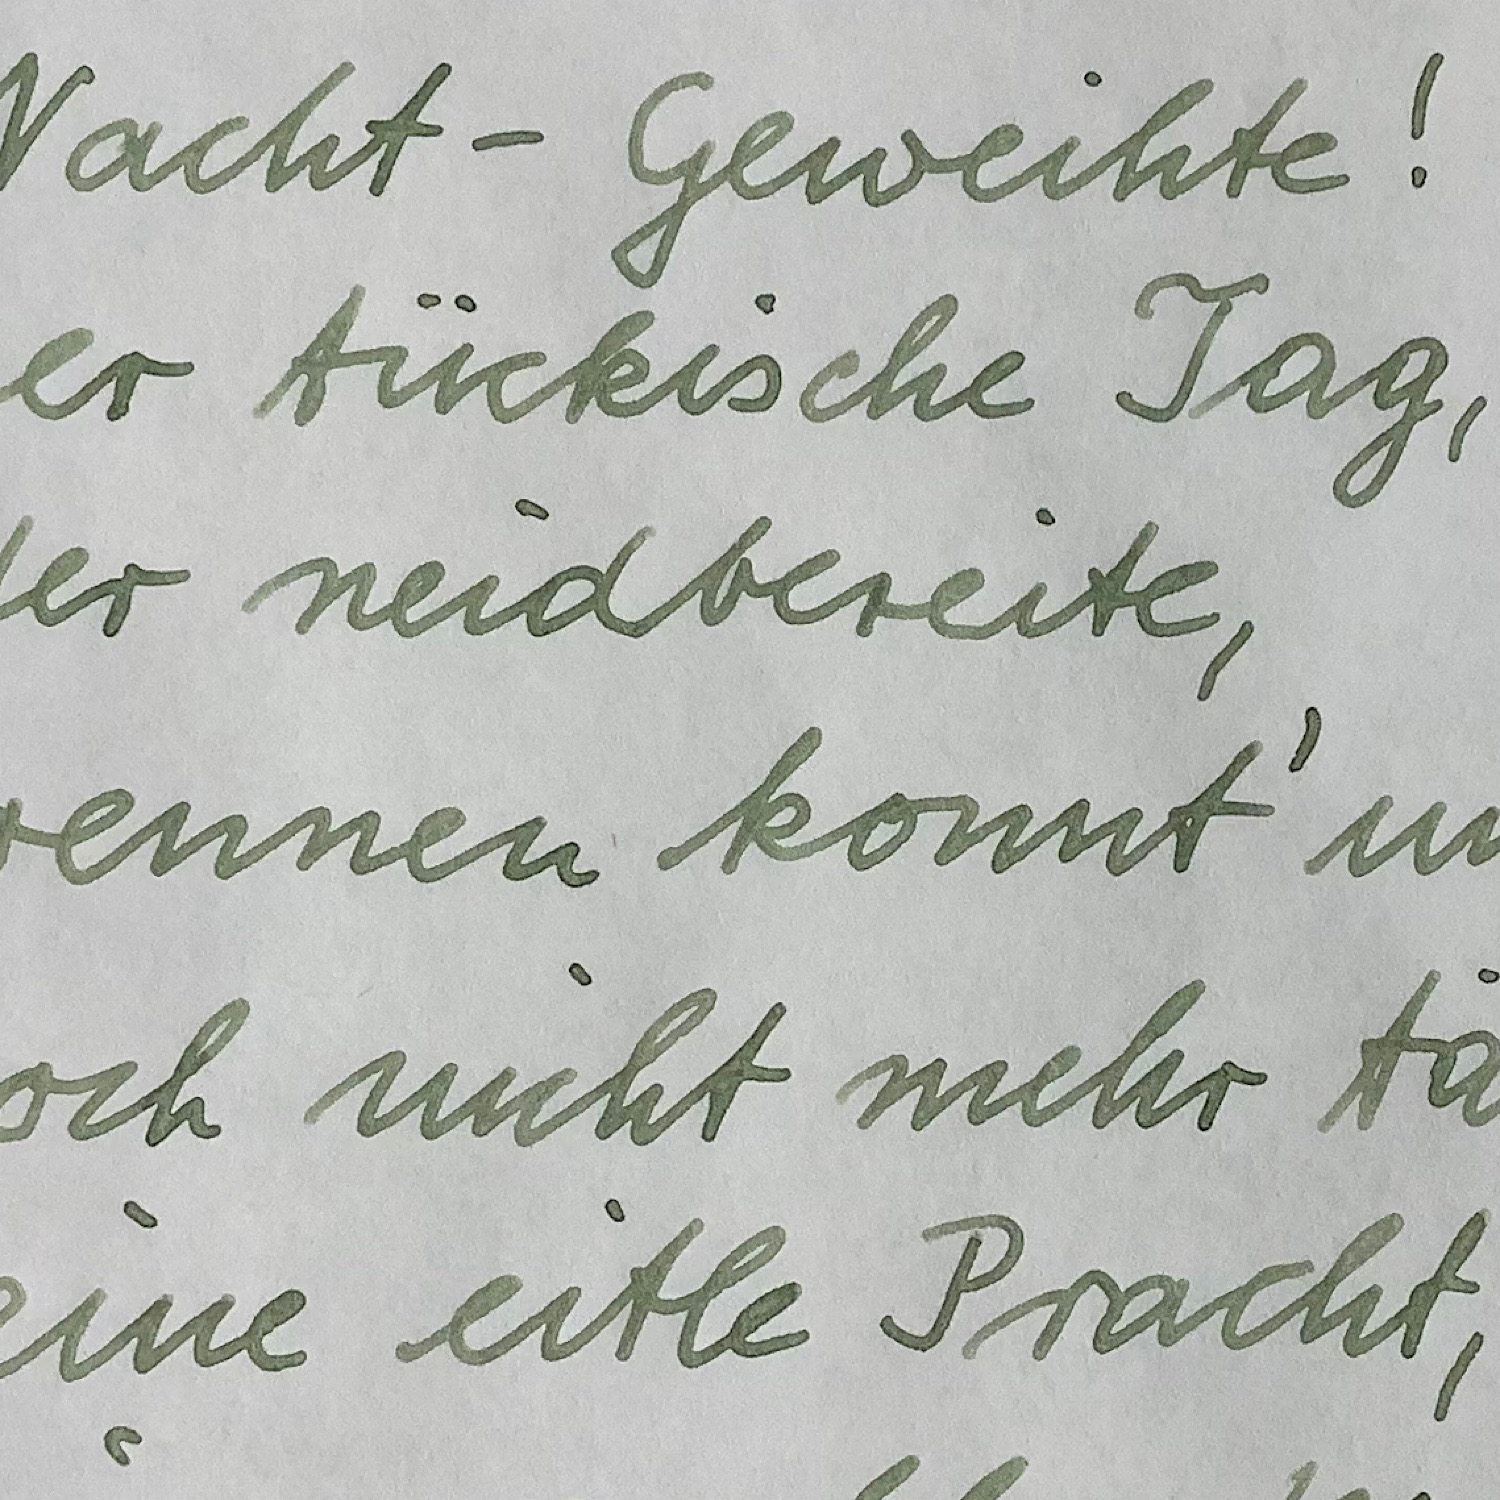 Nacht- Geweihte!
er tückische Tag,
der neidbereite,
rennen konnt' un
och nicht mehr tä
eine eitle Pracht,